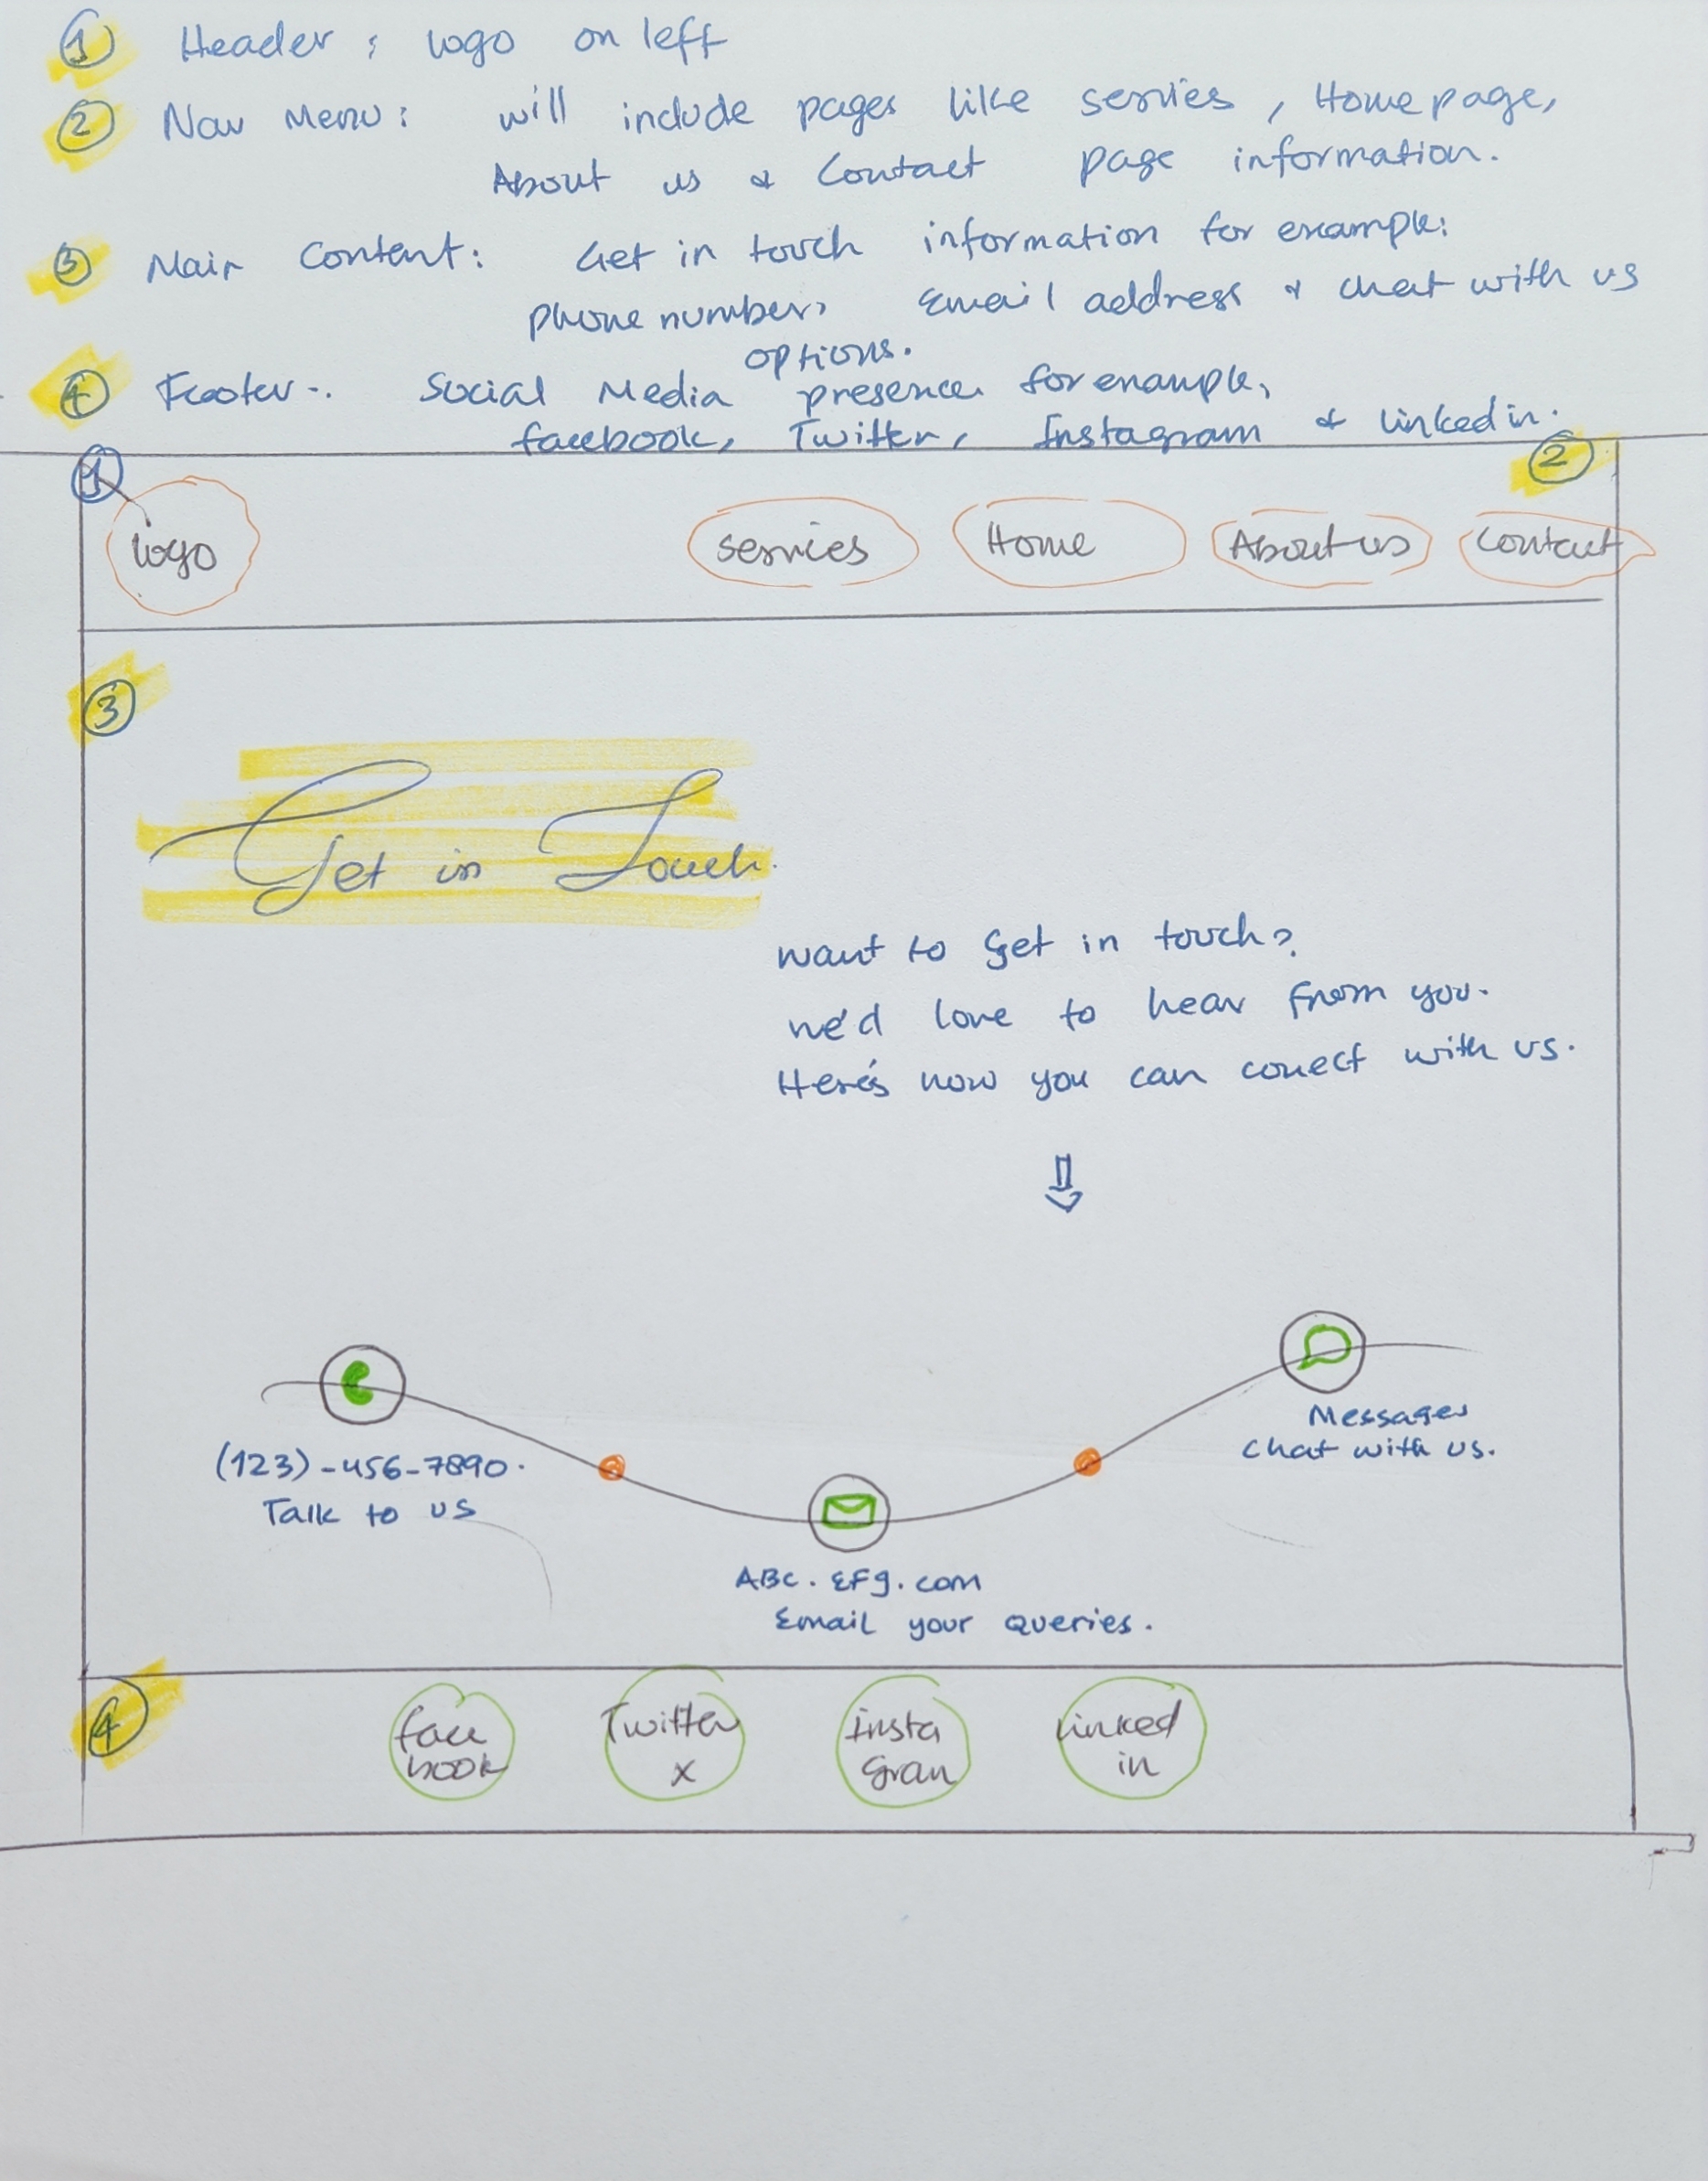 1 Header : logo on left
2 Nav Menu : will include pages like servies , Home page,
About us & Contact page information.
3 Main Content : Get in touch information for example:
phone number, Email address & chat with us
options.
4 Footer-. Social Media presence for example,
facebook, Twitter, Instagram & linked in.
1
2
logo
servies
Home
About us
contact
3
Get in Touch.
want to get in touch?
we'd love to hear from you.
Here's how you can conect with us.
(123)-456-7890.
Talk to us
Messages
chat with us.
ABC. EFg. com
Email your queries.
4
face
book
Twitter
x
insta
gram
linked
in